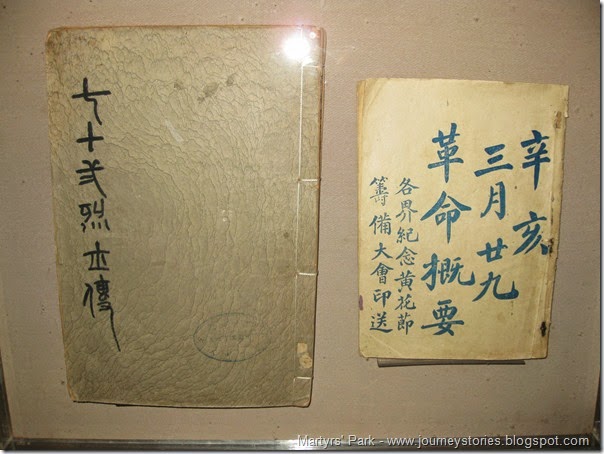 七十弍烈士傳
辛亥
三月廿九
革命概要
各界紀念黃花節
籌備大會印送
Martyrs' Park - www.journeystories.blogspot.com